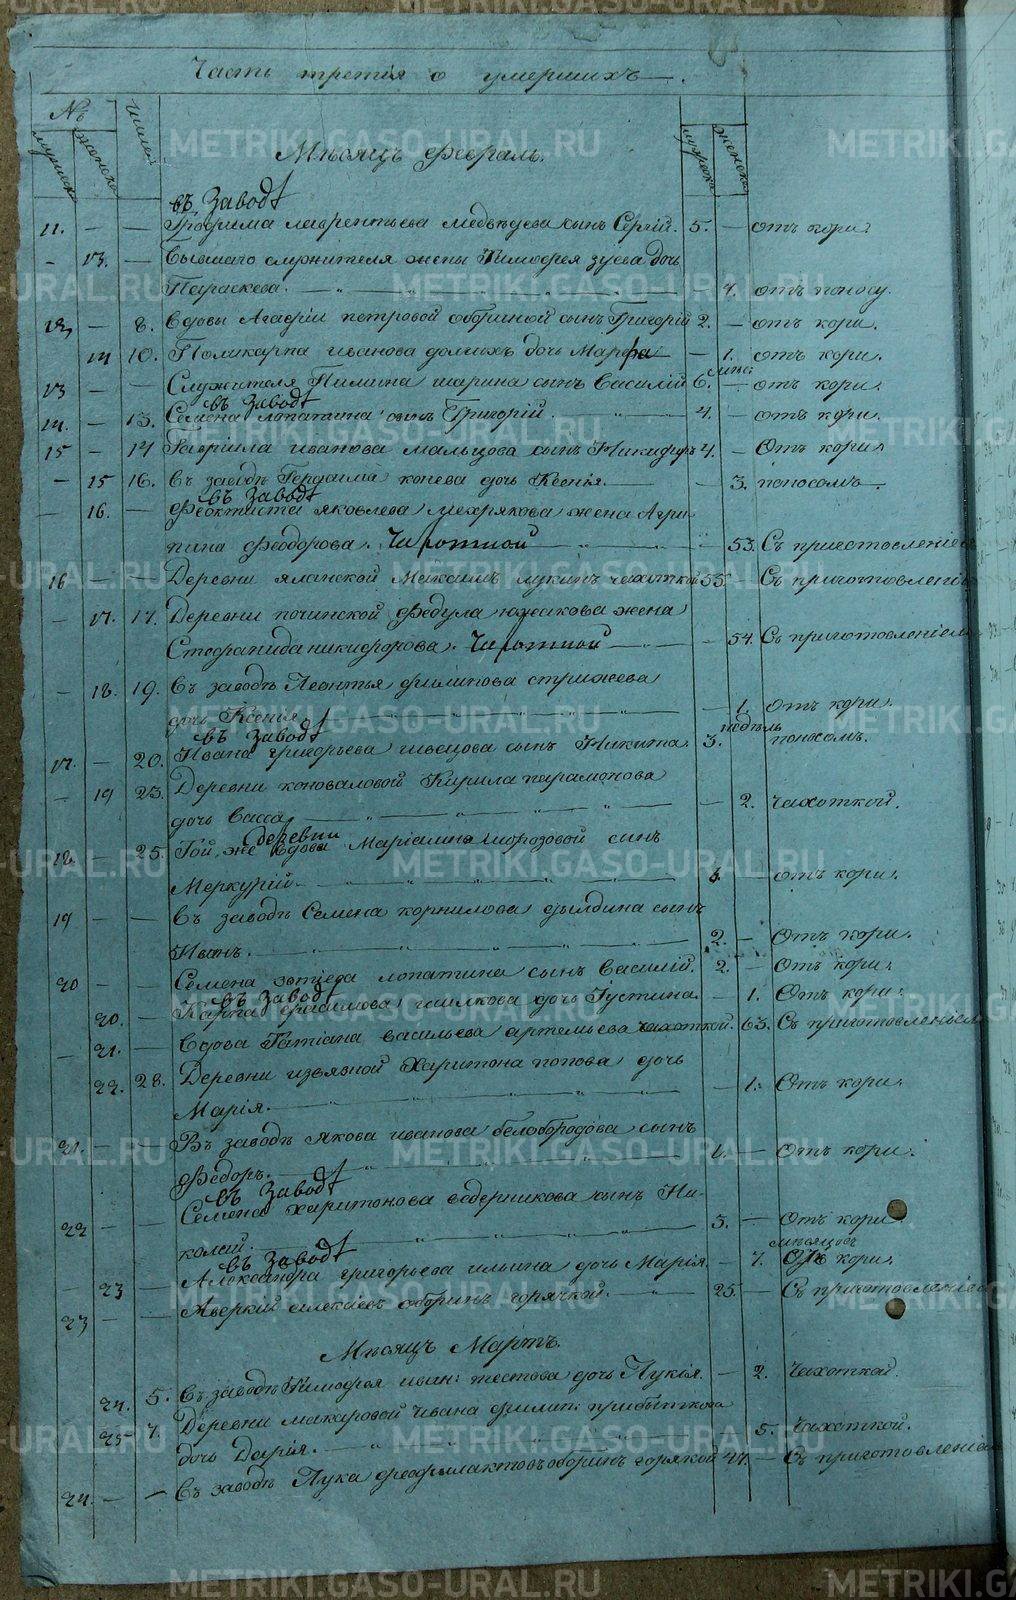 Часть третія о умершихъ.
№ъ
мужеска женска числа мужеска женска
Мѣсяцъ Февраль.
въ Заводѣ
11. — — Трофима лаврентьева медвѣдева сынъ Сергій. 5. — отъ кори
- 13. — бывшаго служителя жены Тимофея зуева дочь
Параскева. — 4. отъ поносу.
12 — 8. вдовы Агафіи петровой обориной сынъ Григорій 2. — отъ кори.
14 10. Поликарпа иванова долгихъ дочь Марфа — 1. отъ кори.
13 — — Служителя Пимина шарина сынъ Василій 6. — отъ кори.
въ Заводѣ
14. — 13. Семена лопатина сынъ Григорій. 4. — отъ кори.
15 — 14 Гавріила иванова мальцова сынъ Никифоръ 4. — Отъ кори
— 15 16. въ заводѣ Герасима конева дочь Ксенія. — 3. поносомъ.
въ Заводѣ
— 16. — Феоктиста яковлева мехрякова жена Агри-
пина феодорова. Чахоткой 53. Съ
16 — — Деревни яланской Максимъ лукинъ чахоткой 55. Съ приготовленіем
— 17. 17. Деревни починской федула южакова жена
Стефанида никифорова. Чахоткой — 54. Съ приготовленіем
— 18. 19. въ заводѣ Леонтья филипова стрижева
дочь Ксенія — 1. отъ кори.
въ Заводѣ недѣль
17. — 20. Ивана григорьева швецова сынъ Никита. 3. поносомъ.
— 19 23. Деревни коноваловой Кирила парамонова
дочь Васса — 2. чахоткой.
деревни
18. — 25. Той же вдовы Маріамны морозовой сынъ
Меркурій — отъ кори.
19 — — въ заводѣ Семена корнилова сынъ
Иванъ. 2. — Отъ кори.
20 — — Семена лопатина сынъ Василій. 2. — Отъ кори.
въ Заводѣ
20. — Карпа дочь Густина. — 1. Отъ кори.
— 21. — вдова Татіана васильева артемьева чахоткой. 63. Съ приготовленіем
22. 28. Деревни извязной Харитона попова дочь
Марія. — 1. Отъ кори.
21. — — Въ заводѣ якова иванова белобородова сынъ
Федоръ. 1. — отъ кори
въ Заводѣ
22 — — Семена харитонова ведерникова сынъ Ни-
колай. 3. — Отъ кори
въ Заводѣ мѣсяцовъ
— 23 — Александра григорьева ильина дочь Марія. — 7. Отъ кори.
23 — — Аверкій алексѣевъ оборинъ горячкой. 25. — Съ приготовленіем
Мѣсяцъ Мартъ.
24. 5. въ заводѣ Тимофея иван: тестова дочь Лукія. — 2. Чахоткой.
25 7. Деревни макаровой Ивана филип: прибыткова
дочь Дарія. — 5. Чахоткой.
24. — — въ заводѣ Лука феофилактовъ оборинъ горячкой 47. — Съ приготовленіем
METRIKI.GASO-URAL.RU